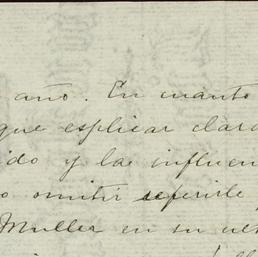 año. En cuanto
que esplicar clara
ido y la influen
o omitir referirle
Muller en su